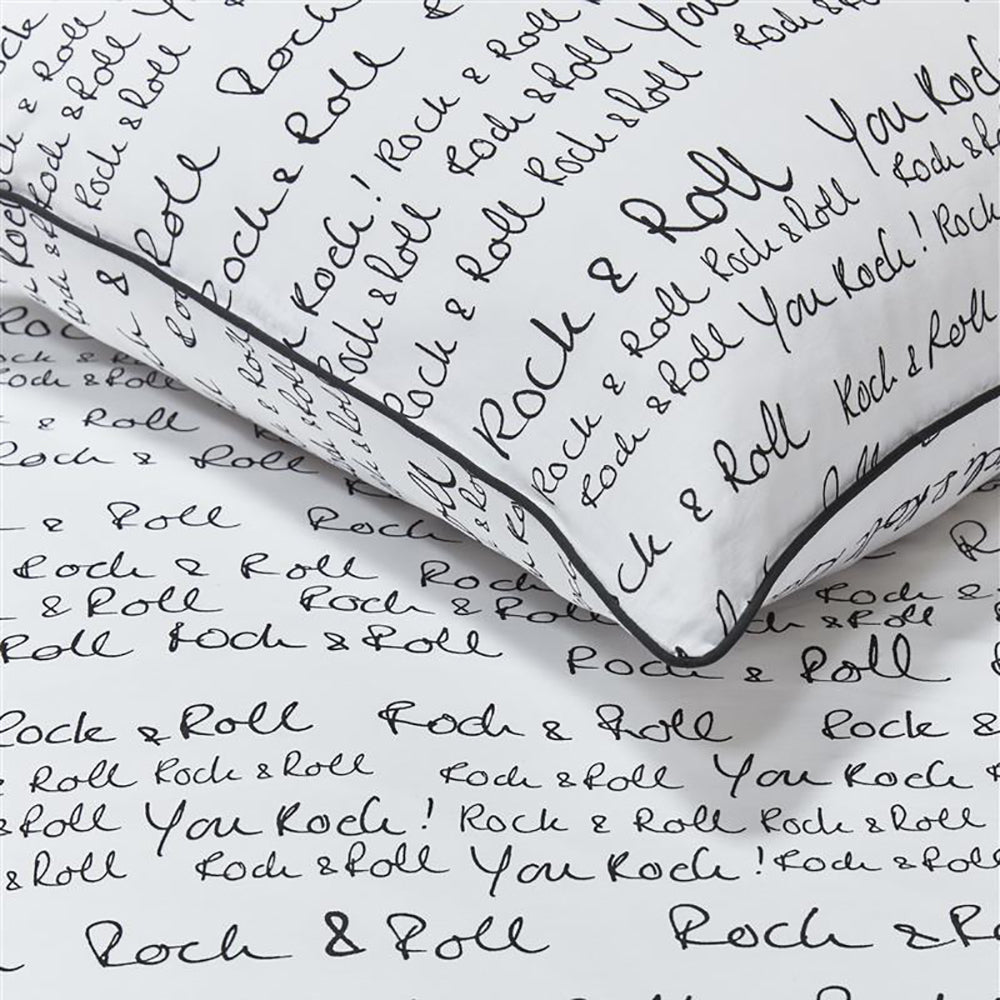 Rock
Rock & Roll
& Roll
Rock & Roll
Rock & Roll You
Rock & Roll Rock & Roll
Rock & Roll
Rock! Rock & Roll
Rock & Roll
Rock & Roll
Rock & Roll You Rock
Rock & Roll Rock & Roll
Rock & Roll You Rock! Rock
& Roll Rock & Roll
& Roll
Rock & Roll
& Roll Rock
Rock & Roll Rock
& Roll Rock & Roll
Roll Rock & Roll
Rock & Roll
Rock & Roll Rock & Roll Rock &
& Roll Rock & Roll Rock & Roll You Rock
& Roll You Rock! Rock & Roll Rock & Roll
& Roll Rock & Roll You Rock! Rock & Roll
Rock & Roll Rock &